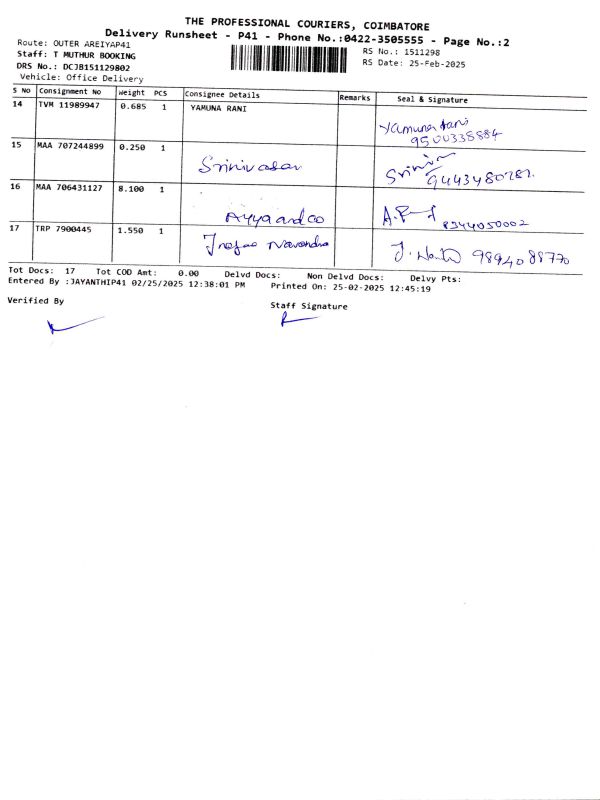 THE PROFESSIONAL COURIERS, COIMBATORE
Delivery Runsheet - P41 - Phone No.:0422-3505555 - Page No.:2
Route: OUTER AREIYAP41
Staff: T MUTHUR BOOKING
DRS No.: DCJB151129802
Vehicle: Office Delivery
RS No.: 1511298
RS Date: 25-Feb-2025
S No Consignment No Weight PCS Consignee Details Remarks Seal & Signature
14 TVM 11989947 0.685 1 YAMUNA RANI
Yamuna rani
9500338884
15 MAA 707244899 0.250 1
Srinivasan
9443480781.
16 MAA 706431127 8.100 1
Ayya and co
8344050002
17 TRP 7900445 1.550 1
Narendra
9894088770
Tot Docs: 17 Tot COD Amt: 0.00 Delvd Docs: Non Delvd Docs: Delvy Pts:
Entered By :JAYANTHIP41 02/25/2025 12:38:01 PM Printed On: 25-02-2025 12:45:19
Verified By
Staff Signature